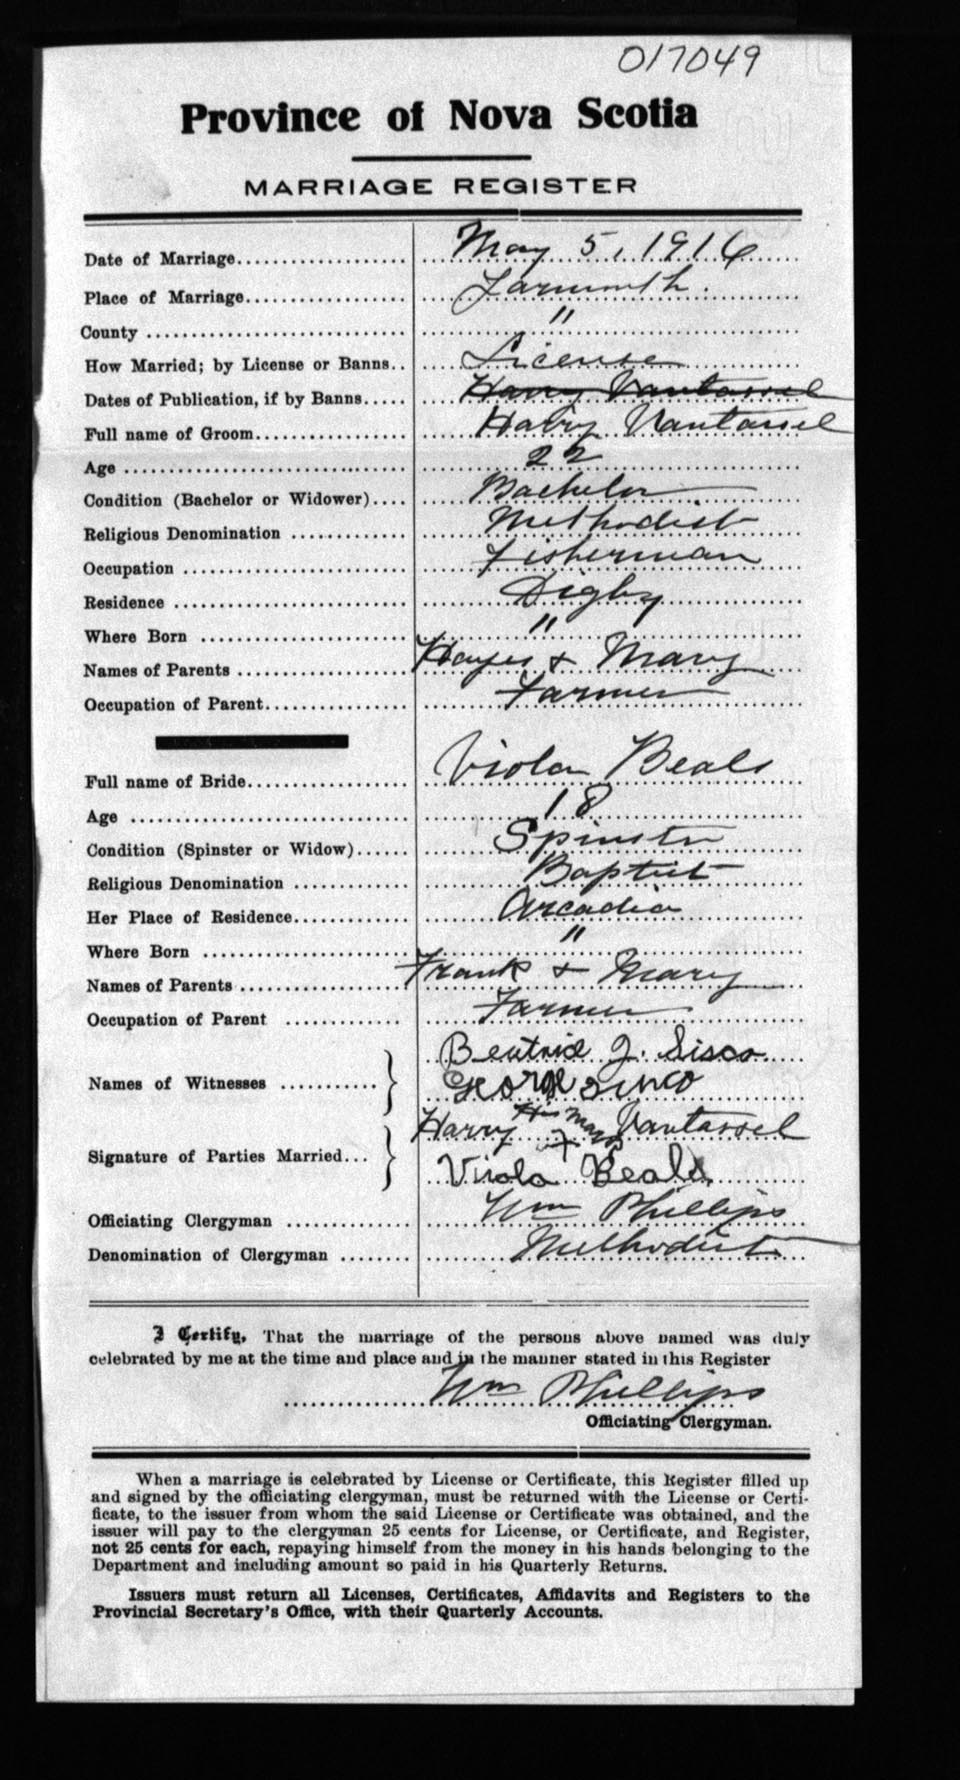 017049
Province of Nova Scotia
MARRIAGE REGISTER
Date of Marriage.................... May 5, 1916
Place of Marriage................... Yarmouth.
County ............................. "
How Married; by License or Banns.. License
Dates of Publication, if by Banns..... Harry Vantassel
Full name of Groom.................. Harry Vantassel
Age ................................ 22
Condition (Bachelor or Widower).... Bachelor
Religious Denomination ............. Methodist
Occupation ......................... Fisherman
Residence .......................... Digby
Where Born ......................... "
Names of Parents ................... Hayes & Mary
Occupation of Parent................ Farmer
Full name of Bride.................. Viola Beals
Age ................................ 18
Condition (Spinster or Widow)...... Spinster
Religious Denomination ............. Baptist
Her Place of Residence.............. Arcadia
Where Born ......................... "
Names of Parents ................... Frank & Mary
Occupation of Parent ............... Farmer
Names of Witnesses ........... } Beatrice J. Sisco
George Sisco
Signature of Parties Married... } Harry His Mark X Vantassel
Viola Beals
Officiating Clergyman .............. Wm Phillips
Denomination of Clergyman ........ Methodist
I Certify, That the marriage of the persons above named was duly
celebrated by me at the time and place and in the manner stated in this Register
Wm Phillips
Officiating Clergyman.
When a marriage is celebrated by License or Certificate, this Register filled up
and signed by the officiating clergyman, must be returned with the License or Certi-
ficate, to the issuer from whom the said License or Certificate was obtained, and the
issuer will pay to the clergyman 25 cents for License, or Certificate, and Register,
not 25 cents for each, repaying himself from the money in his hands belonging to the
Department and including amount so paid in his Quarterly Returns.
Issuers must return all Licenses, Certificates, Affidavits and Registers to the
Provincial Secretary's Office, with their Quarterly Accounts.